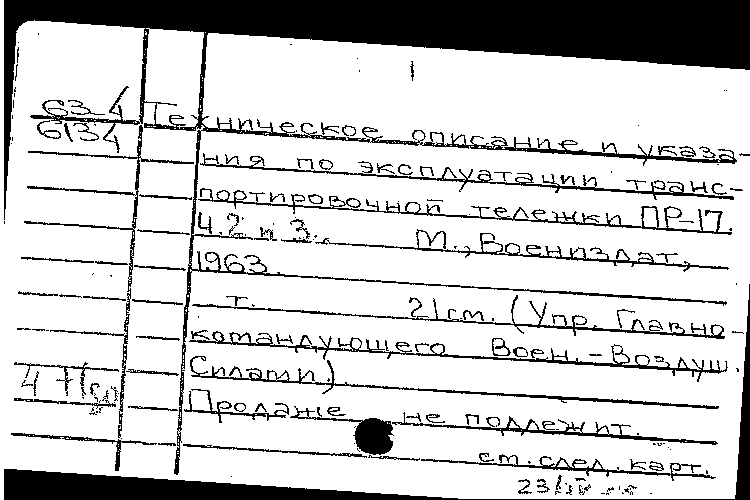 63-4 Техническое описание и указа-
6134
ния по эксплуатации транс-
портировочной тележки ПР-17.
Ч.2 и 3. М., Воениздат,
1963.
т. 21см. (Упр. Главно-
командующего Воен.-Воздуш.
Силами).
Продаже не подлежит.
см. след. карт.